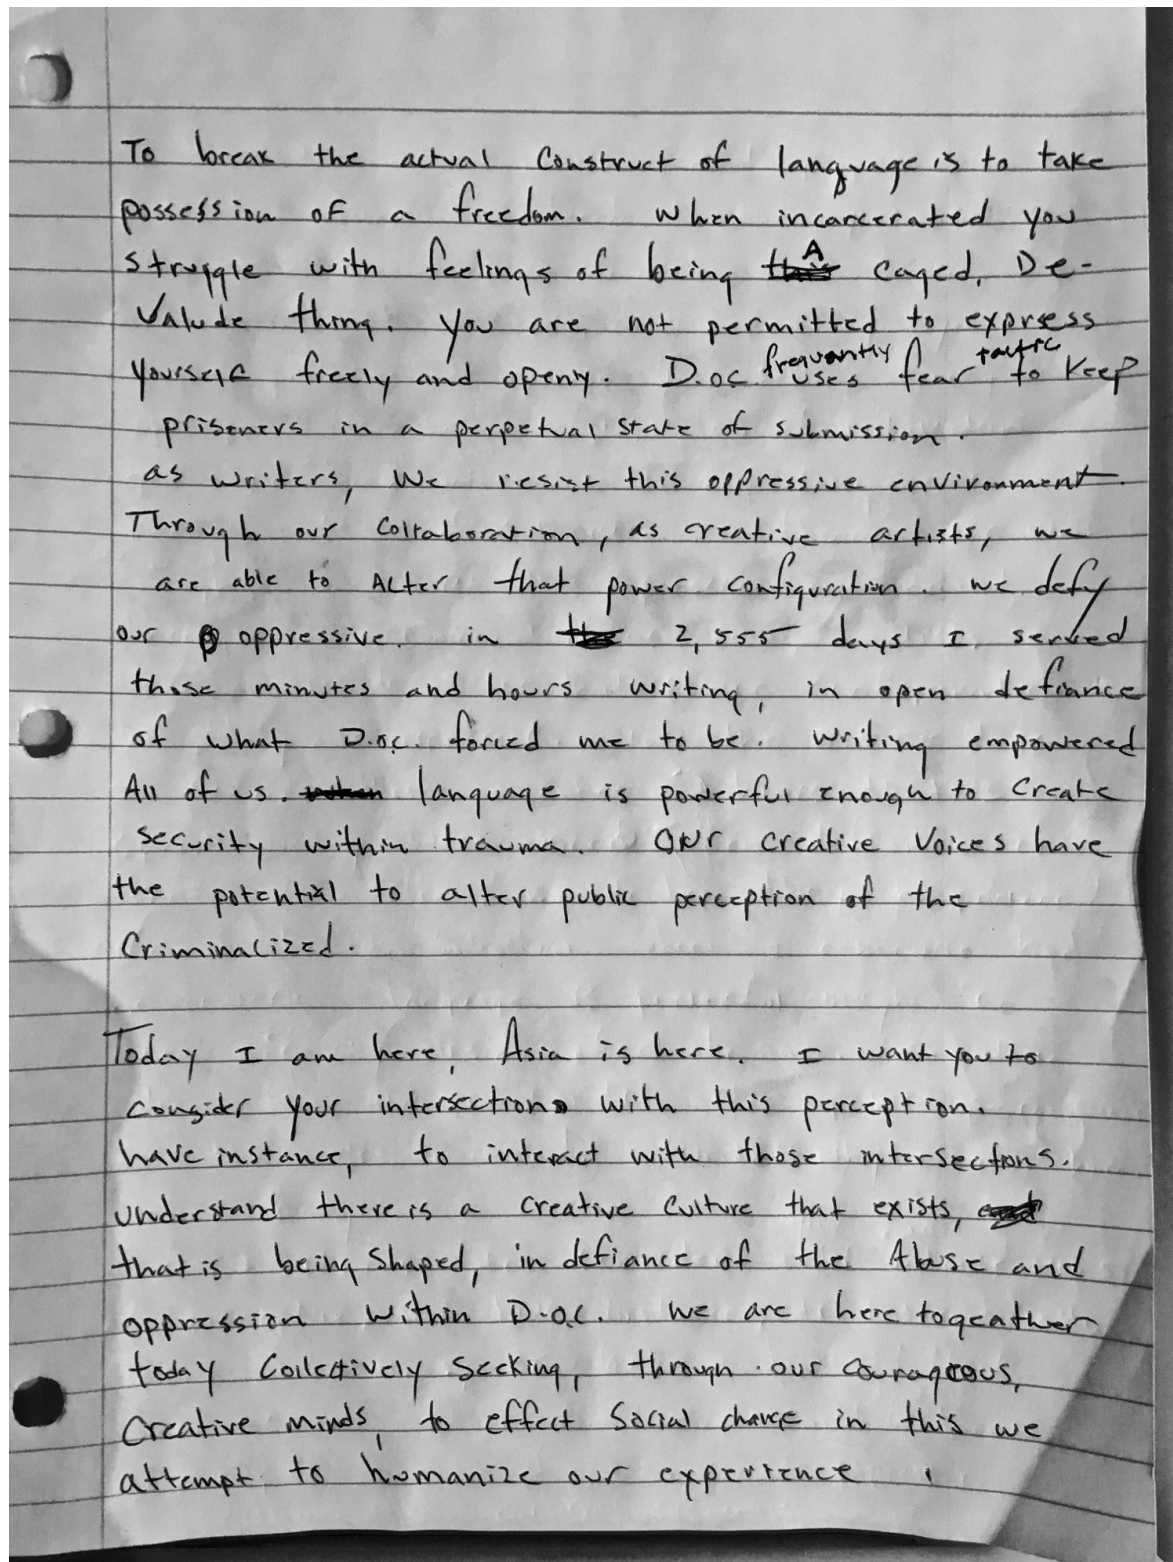 To break the actual Construct of language is to take
possession of a freedom. When incarcerated you
struggle with feelings of being A caged, De-
Valude thing. You are not permitted to express
yourself freely and openy. D.oc frequantly uses fear tactic to Keep
prisoners in a perpetual state of submission.
as writers, We resist this oppressive environment.
Through our Collaboration, as creative artists, we
are able to Alter that power configuration. we defy
our oppressive. in 2,555 days I served
those minutes and hours writing, in open defiance
of what D.o.c. forced me to be. Writing empowered
All of us. language is powerful enough to Create
security within trauma. OUr Creative Voices have
the potential to alter public perception of the
Criminalized.
Today I am here, Asia is here. I want you to
consider your intersections with this perception.
have instance, to interact with those intersections.
understand there is a Creative Culture that exists,
that is being Shaped, in defiance of the Abuse and
oppression within D.O.C. we are here togeather
today Collectively Seeking, through our Courageous,
Creative minds, to effect Social change in this we
attempt to humanize our experience.